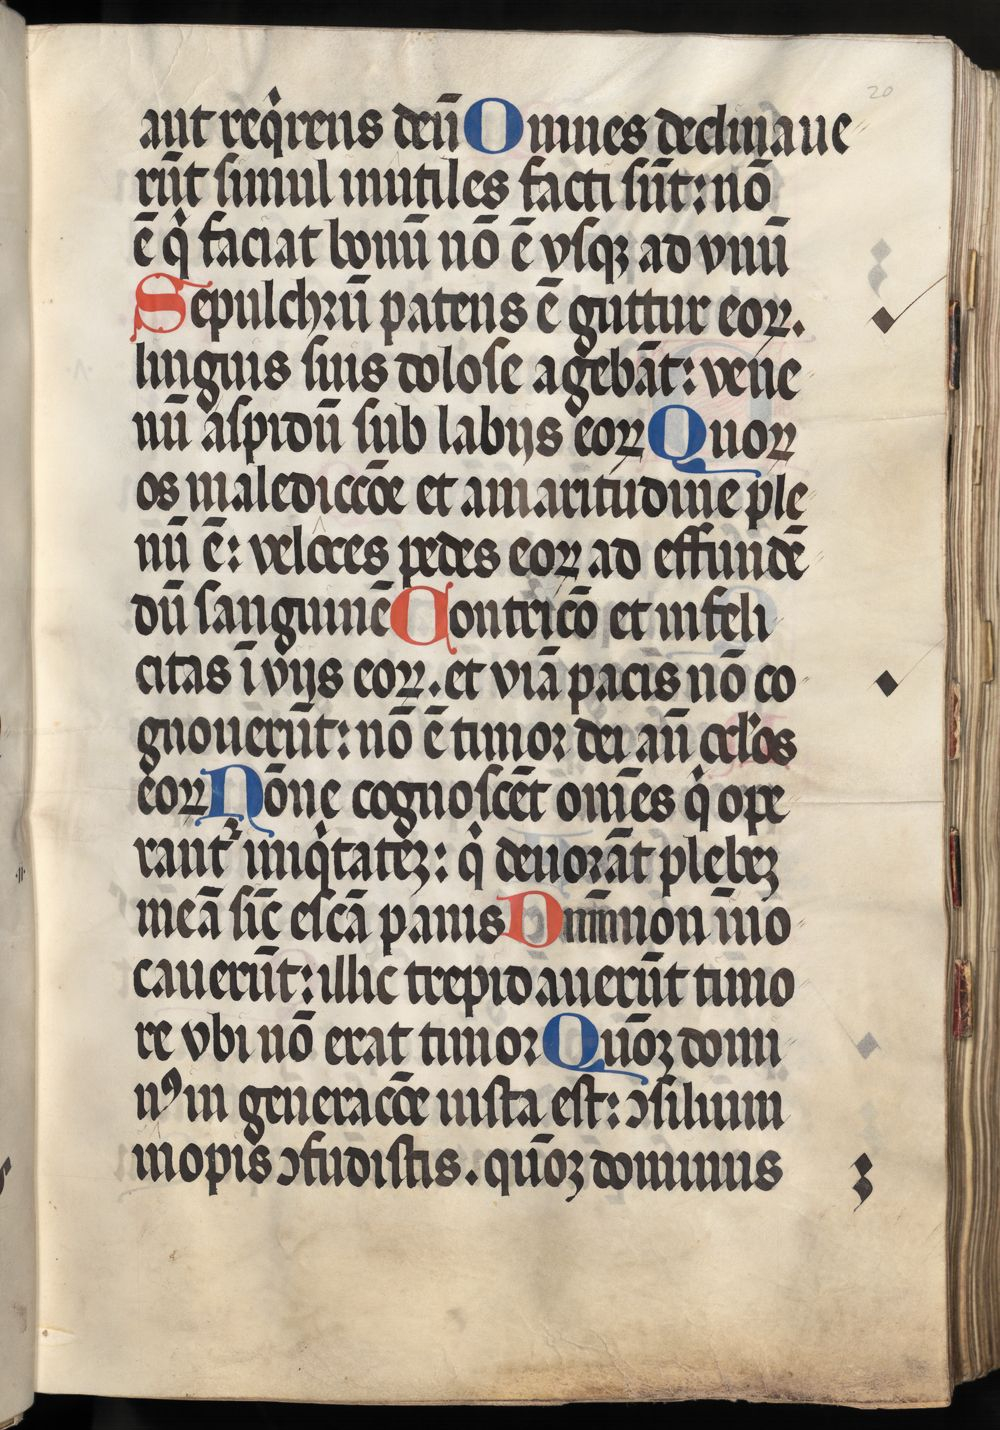 20
aut reqͥrens deū Omnes declinaue
rūt simul inutiles facti sūt: nō
ē qͥ faciat bonū nō ē vsqꝫ ad vnū
Sepulchꝛū patens ē guttur eoꝝ.
linguis suis dolose agebāt: vene
nū aspidū sub labijs eoꝝ Quoꝝ
os malediccōe et amaritudine ple
nū ē: veloces pedes eoꝝ ad effundē
dū sanguinē Contricō et infeli
citas ī vijs eoꝝ. et viā pacis nō co
gnouerūt: nō ē timoꝛ dei añ oclos
eoꝝ Nōne cognoscēt om̄es qͥ ope
rant᷑ iniqͥtatēꝫ: qͥ deuoꝛāt plebeꝫ
meā sic̄ escā panis Dn̄m non īuo
cauerūt: illic trepidauerūt timo
re vbi nō erat timoꝛ Qūoꝫ domi
nꝰ in generacōe iusta est: ↄsilium
inopis ↄfūdistis. qūoꝫ dominus